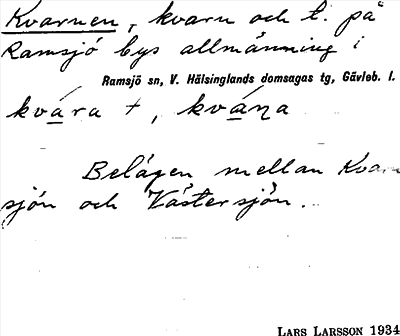 Kvarnen, kvarn och t. på
Ramsjö bys allmänning i
Ramsjö sn, V. Hälsinglands domsagas tg, Gävleb. l.
kvára +, kváṇa
Belägen mellan Kvarn
sjön och Västersjön.
LARS LARSSON 1934